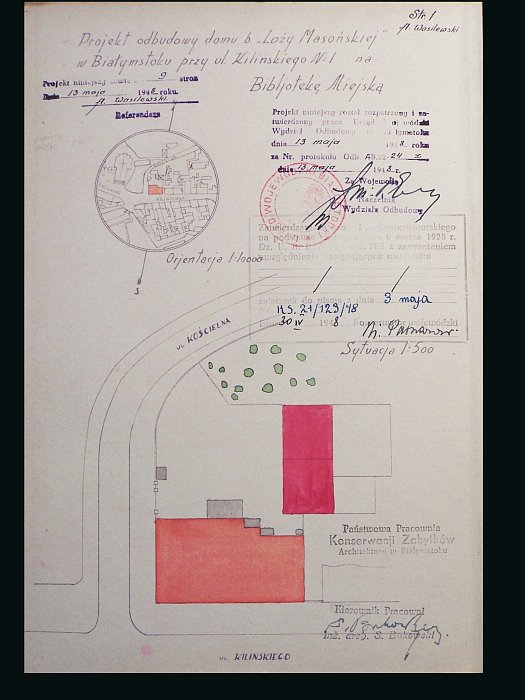 Str. 1
A. Wasilewski
Projekt odbudowy domu b „Loży Masońskiej"
w Białymstoku przy ul. Kilińskiego No 1 na
Bibljotekę Miejską
Projekt niniejszy 9 stron
Dnia 13 maja 1948 roku.
A. Wasilewski
Referendarz
Projekt niniejszy został rozpatrzony i za-
twierdzony przez Urząd Wojewódzki
Wydział Odbudowy Białymstoku
dnia 13 maja 1948 roku
za Nr. protokułu Odb. AB.22-24
dnia 13 maja 1948 r.
Za Wojewodę
Naczelnik
Wydziału Odbudowy
S
Orjentacja 1:10000
na podstawie 6 marca 1928 r.
Dz. U. R. 265 z zastrzeżeniem
uwzględnienia następujących warunków
załącznik do pisma z dnia 3 maja
H.S. 21/129/48
30 IV 1948 Konserwator wojewódzki
Sytuacja 1:500
ul. KOŚCIELNA
Państwowa Pracownia
Konserwacji Zabytków
Architektury w Białymstoku
Kierownik Pracowni
inż. arch. S. Bukowski
ul. KILIŃSKIEGO